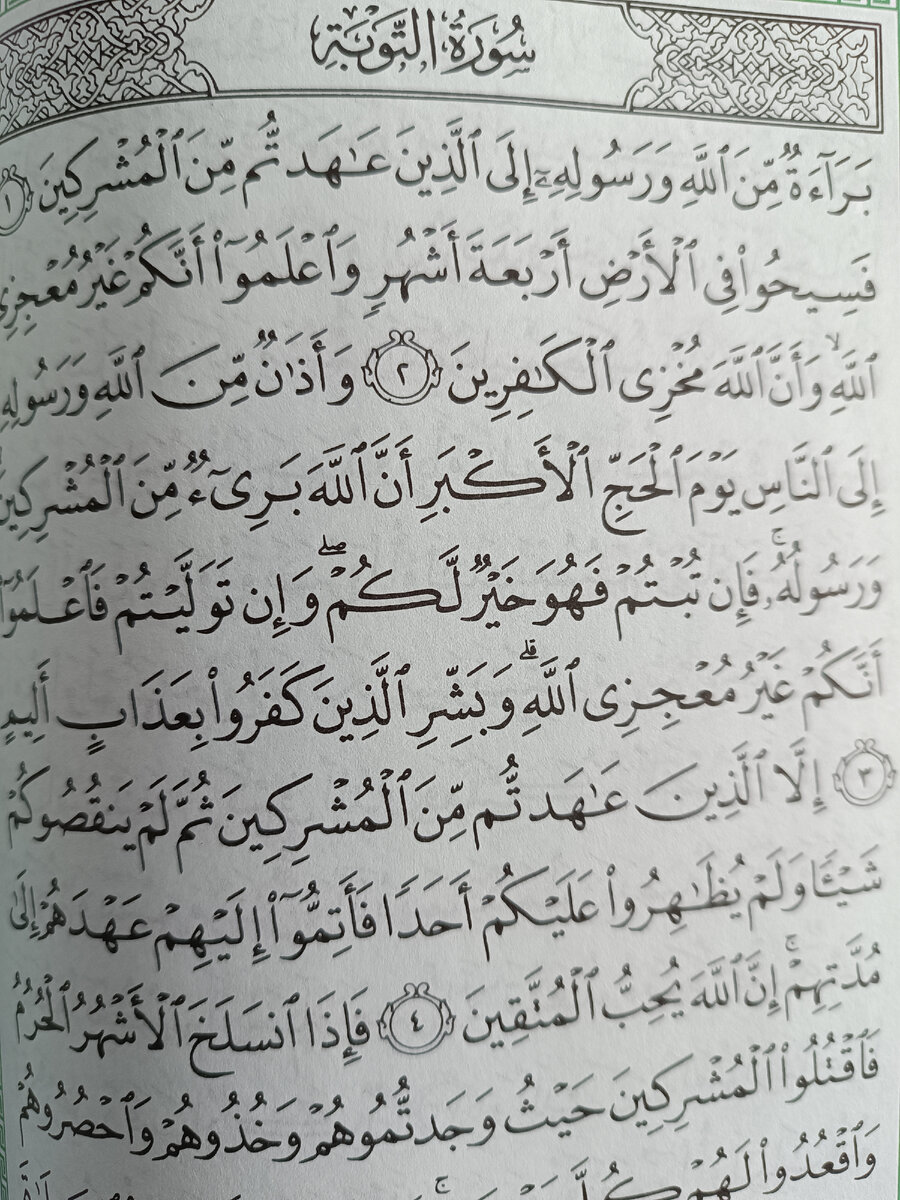 سُورَةُ التَّوۡبَةِ
بَرَآءَةٞ مِّنَ ٱللَّهِ وَرَسُولِهِۦٓ إِلَى ٱلَّذِينَ عَٰهَدتُّم مِّنَ ٱلۡمُشۡرِكِينَ ١
فَسِيحُواْ فِي ٱلۡأَرۡضِ أَرۡبَعَةَ أَشۡهُرٖ وَٱعۡلَمُوٓاْ أَنَّكُمۡ غَيۡرُ مُعۡجِزِي
ٱللَّهِ وَأَنَّ ٱللَّهَ مُخۡزِي ٱلۡكَٰفِرِينَ ٢ وَأَذَٰنٞ مِّنَ ٱللَّهِ وَرَسُولِهِۦٓ
إِلَى ٱلنَّاسِ يَوۡمَ ٱلۡحَجِّ ٱلۡأَكۡبَرِ أَنَّ ٱللَّهَ بَرِيٓءٞ مِّنَ ٱلۡمُشۡرِكِينَ
وَرَسُولُهُۥۚ فَإِن تُبۡتُمۡ فَهُوَ خَيۡرٞ لَّكُمۡۖ وَإِن تَوَلَّيۡتُمۡ فَٱعۡلَمُوٓاْ
أَنَّكُمۡ غَيۡرُ مُعۡجِزِي ٱللَّهِۗ وَبَشِّرِ ٱلَّذِينَ كَفَرُواْ بِعَذَابٍ أَلِيمٍ
٣ إِلَّا ٱلَّذِينَ عَٰهَدتُّم مِّنَ ٱلۡمُشۡرِكِينَ ثُمَّ لَمۡ يَنقُصُوكُمۡ
شَيۡـٔٗا وَلَمۡ يُظَٰهِرُواْ عَلَيۡكُمۡ أَحَدٗا فَأَتِمُّوٓاْ إِلَيۡهِمۡ عَهۡدَهُمۡ إِلَىٰ
مُدَّتِهِمۡۚ إِنَّ ٱللَّهَ يُحِبُّ ٱلۡمُتَّقِينَ ٤ فَإِذَا ٱنسَلَخَ ٱلۡأَشۡهُرُ ٱلۡحُرُمُ
فَٱقۡتُلُواْ ٱلۡمُشۡرِكِينَ حَيۡثُ وَجَدتُّمُوهُمۡ وَخُذُوهُمۡ وَٱحۡصُرُوهُمۡ
وَٱقۡعُدُواْ لَهُمۡ كُلَّ